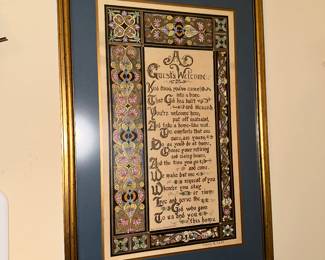 A
Guest's Welcome
Kind friend, you've come
into a home
That God has built
and blessed
You're welcome here,
put off restraint,
And take a home-like rest.
The comforts that are
ours, are yours;
Do as you'd do at home;
Choose your retiring
and rising hours,
And the time you go
and come.
We make but one
request of you
Whether you stay
or roam
Love and serve the
God who gave
To us and you
this home.